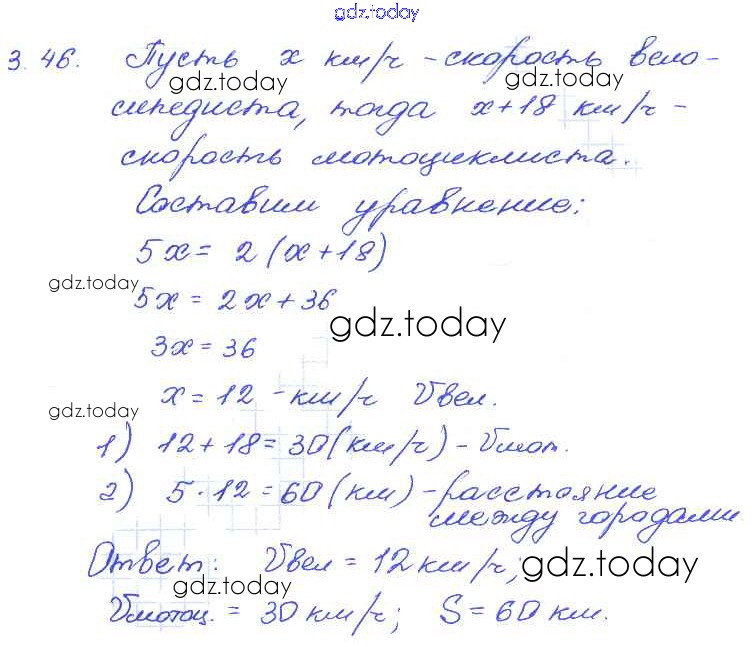 gdz.today
3.46. Пусть x км/ч - скорость вело-
gdz.today gdz.today
сипедиста, тогда x+18 км/ч -
скорость мотоциклиста.
Составим уравнение:
5x = 2 (x+18)
gdz.today
5x = 2x + 36
gdz.today
3x = 36
x = 12 - км/ч Vвел.
gdz.today
1) 12 + 18 = 30 (км/ч) - Vмот.
2) 5 · 12 = 60 (км) - расстояние
между городами
Ответ: Vвел = 12 км/ч;
gdz.today gdz.today
Vмотоц. = 30 км/ч; S = 60 км.